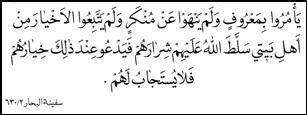 يَأْمُرُوا بِمَعْرُوفٍ وَلَمْ يَنْهَوْا عَنْ مُنْكَرٍ وَلَمْ يَتَّبِعُوا الْأَخْيَارَ مِنْ
أَهْلِ بَيْتِي سَلَّطَ اللهُ عَلَيْهِمْ شِرَارَهُمْ فَيَدْعُو عِنْدَ ذٰلِكَ خِيَارُهُمْ
فَلَا يُسْتَجَابُ لَهُمْ .
سفينة البحار ٢/ ٦٣٠